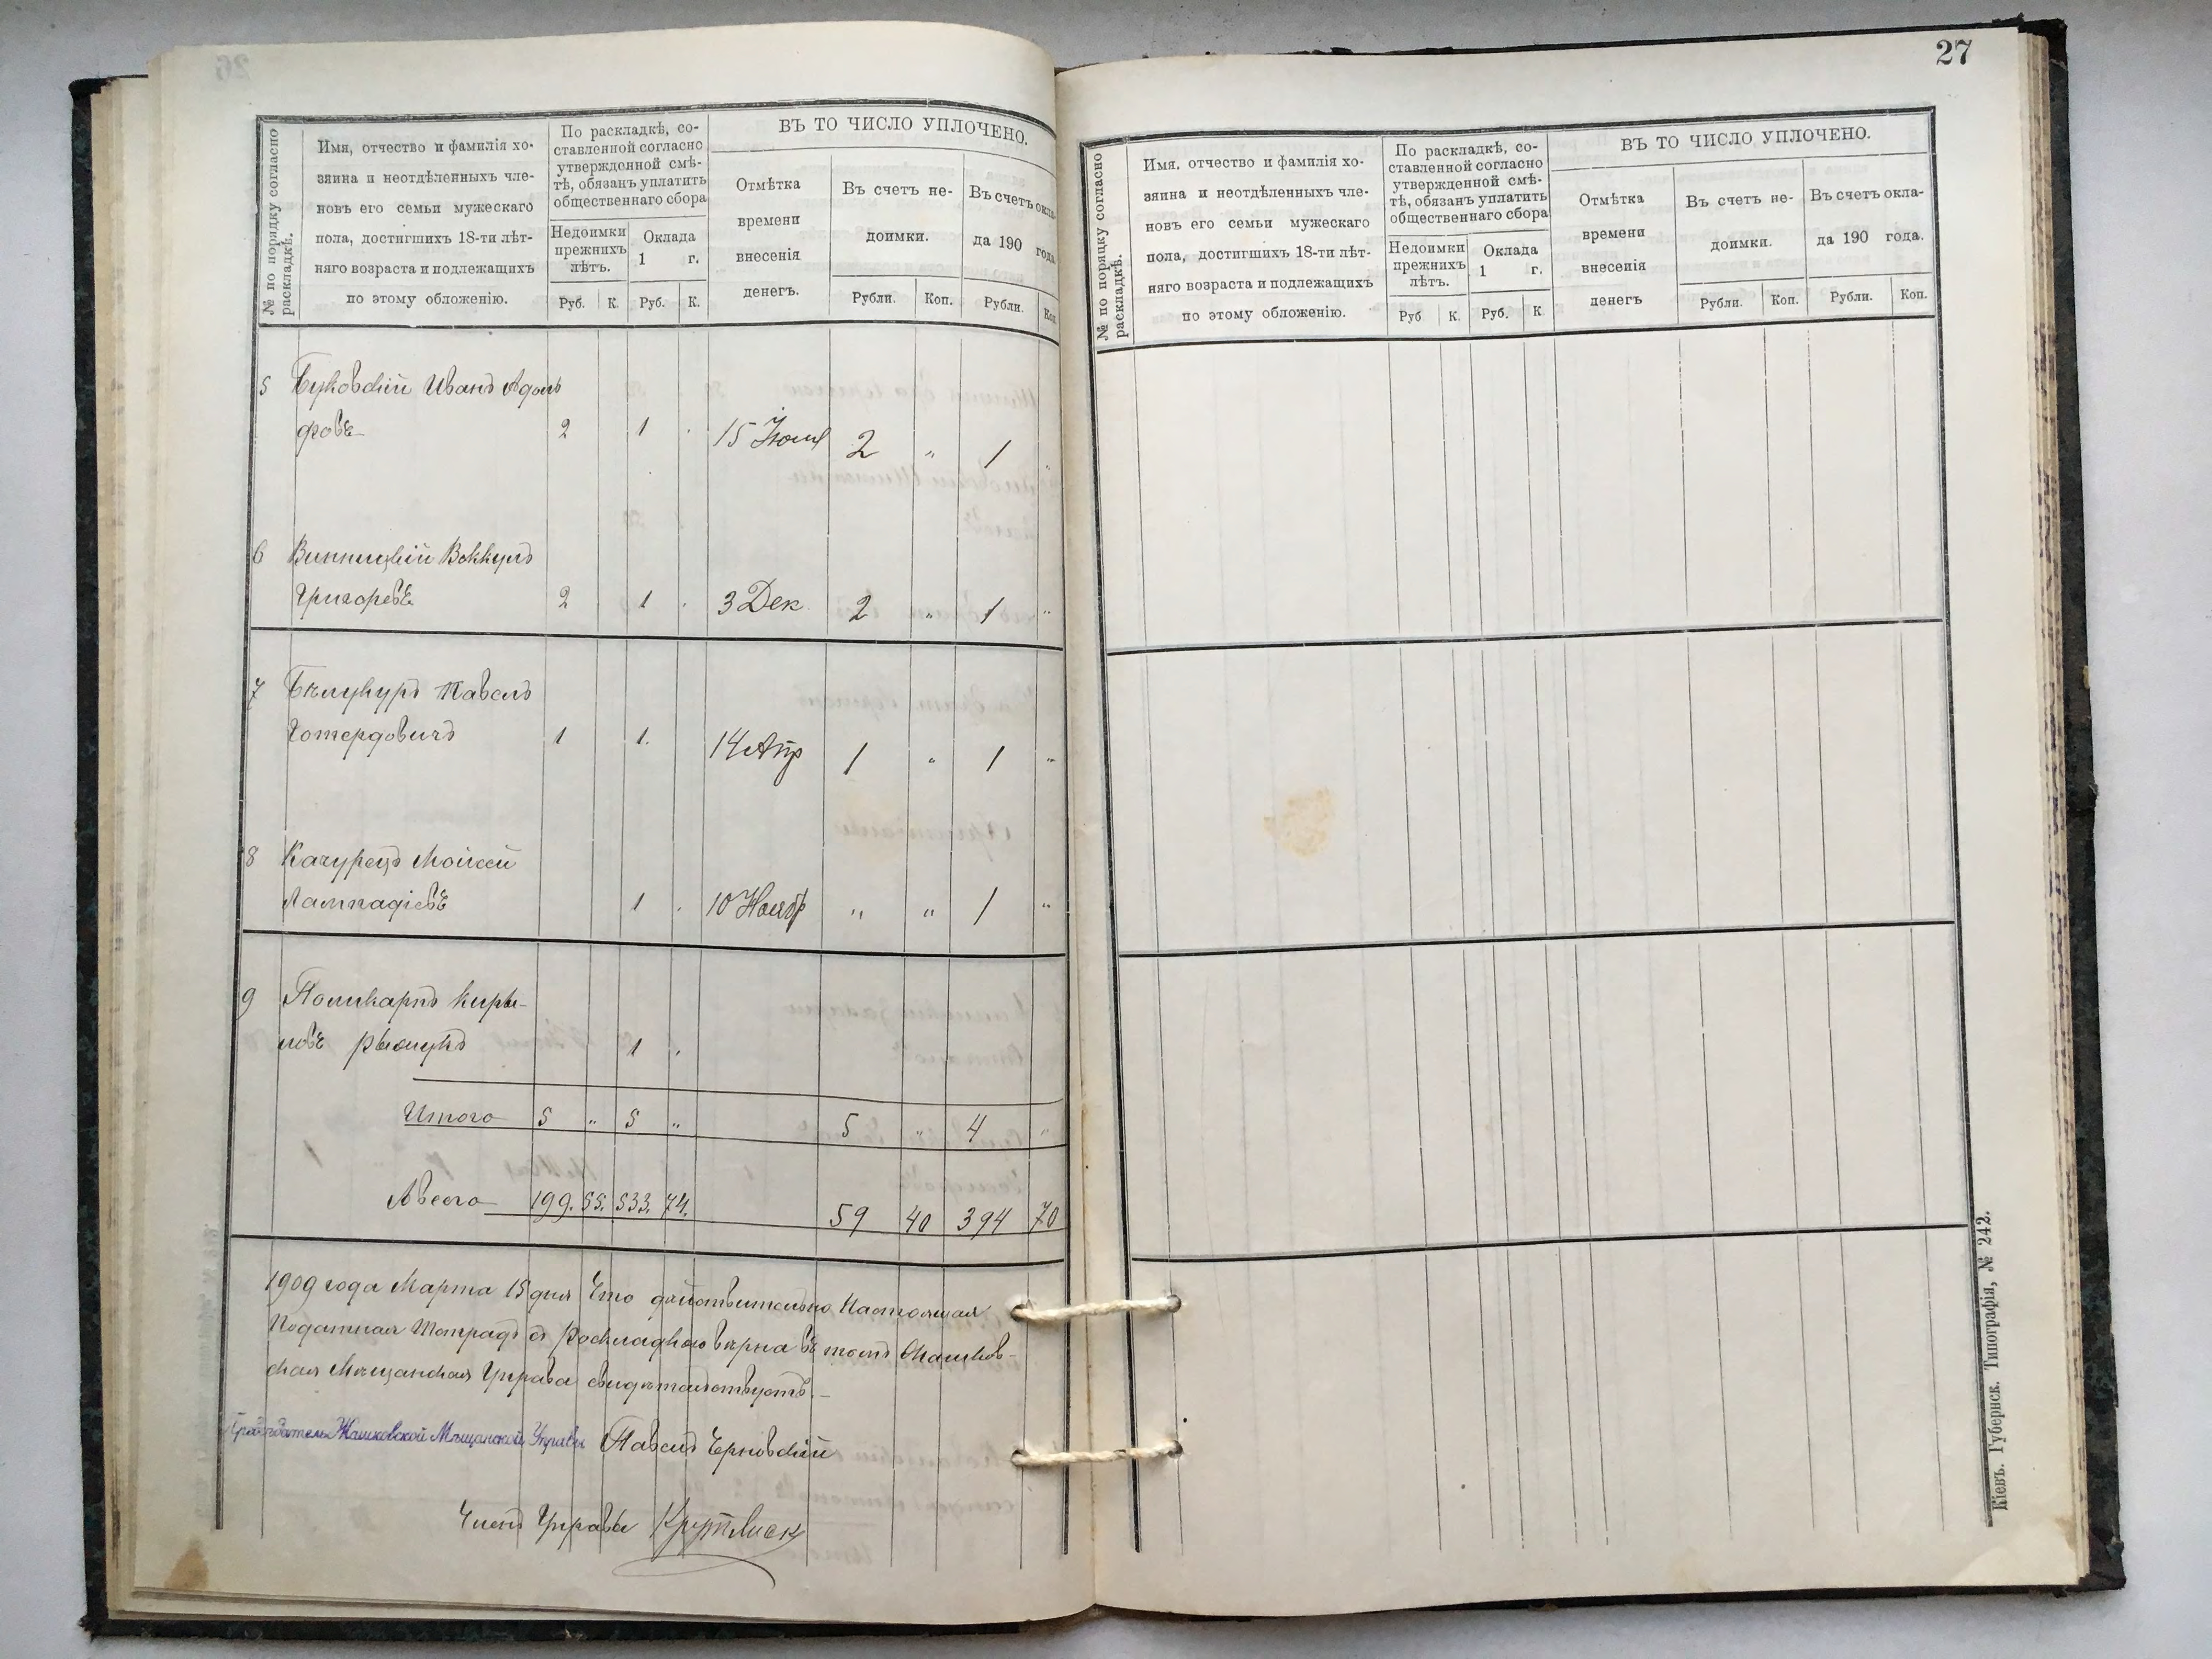 № по порядку согласно
раскладкѣ.
Имя, отчество и фамилія хо-
зяина и неотдѣленныхъ чле-
новъ его семьи мужескаго
пола, достигшихъ 18-ти лѣт-
няго возраста и подлежащихъ
по этому обложенію.
По раскладкѣ, со-
ставленной согласно
утвержденной смѣ-
тѣ, обязанъ уплатить
общественнаго сбора
Недоимки
прежнихъ
лѣтъ.
Оклада
1 г.
Руб. К. Руб. К.
ВЪ ТО ЧИСЛО УПЛОЧЕНО.
Отмѣтка
времени
внесенія
денегъ.
Въ счетъ не-
доимки.
Въ счетъ окла-
да 190 года
Рубли. Коп. Рубли. Коп.
5 Буковскій Иванъ Адоль
фовъ 2 1 15 Іюня 2 " 1 "
6 Винницкій Воккулъ
Григорьевъ 2 1 3 Дек 2 " 1 "
7 Бѣлукуръ Павелъ
1 1. 14 Апр 1 " 1 "
8 Качурецъ Мойсей
Лампадіевъ 1 10 Нояб " " 1 "
9 Поликарпъ Киры-
ловъ 1
Итого 5 " 5 " 5 " 4 "
А всего 199. 55. 533. 74. 59 40 394 70
1909 года Марта 15 дня Что дѣйствительно Настоящая
Податная Тетрадь съ Раскладкою вѣрна въ томъ Жашков-
ская Мѣщанская Управа свидѣтельствуетъ.
Предсѣдатель Жашковской Мѣщанской Управы Павелъ Черновскій
Членъ Управы
27
№ по порядку согласно
раскладкѣ.
Имя, отчество и фамилія хо-
зяина и неотдѣленныхъ чле-
новъ его семьи мужескаго
пола, достигшихъ 18-ти лѣт-
няго возраста и подлежащихъ
по этому обложенію.
По раскладкѣ, со-
ставленной согласно
утвержденной смѣ-
тѣ, обязанъ уплатить
общественнаго сбора
Недоимки
прежнихъ
лѣтъ.
Оклада
1 г.
Руб К. Руб. К
ВЪ ТО ЧИСЛО УПЛОЧЕНО.
Отмѣтка
времени
внесенія
денегъ
Въ счетъ не-
доимки.
Въ счетъ окла-
да 190 года.
Рубли. Коп. Рубли. Коп.
Кіевъ. Губернск. Типографія, № 242.